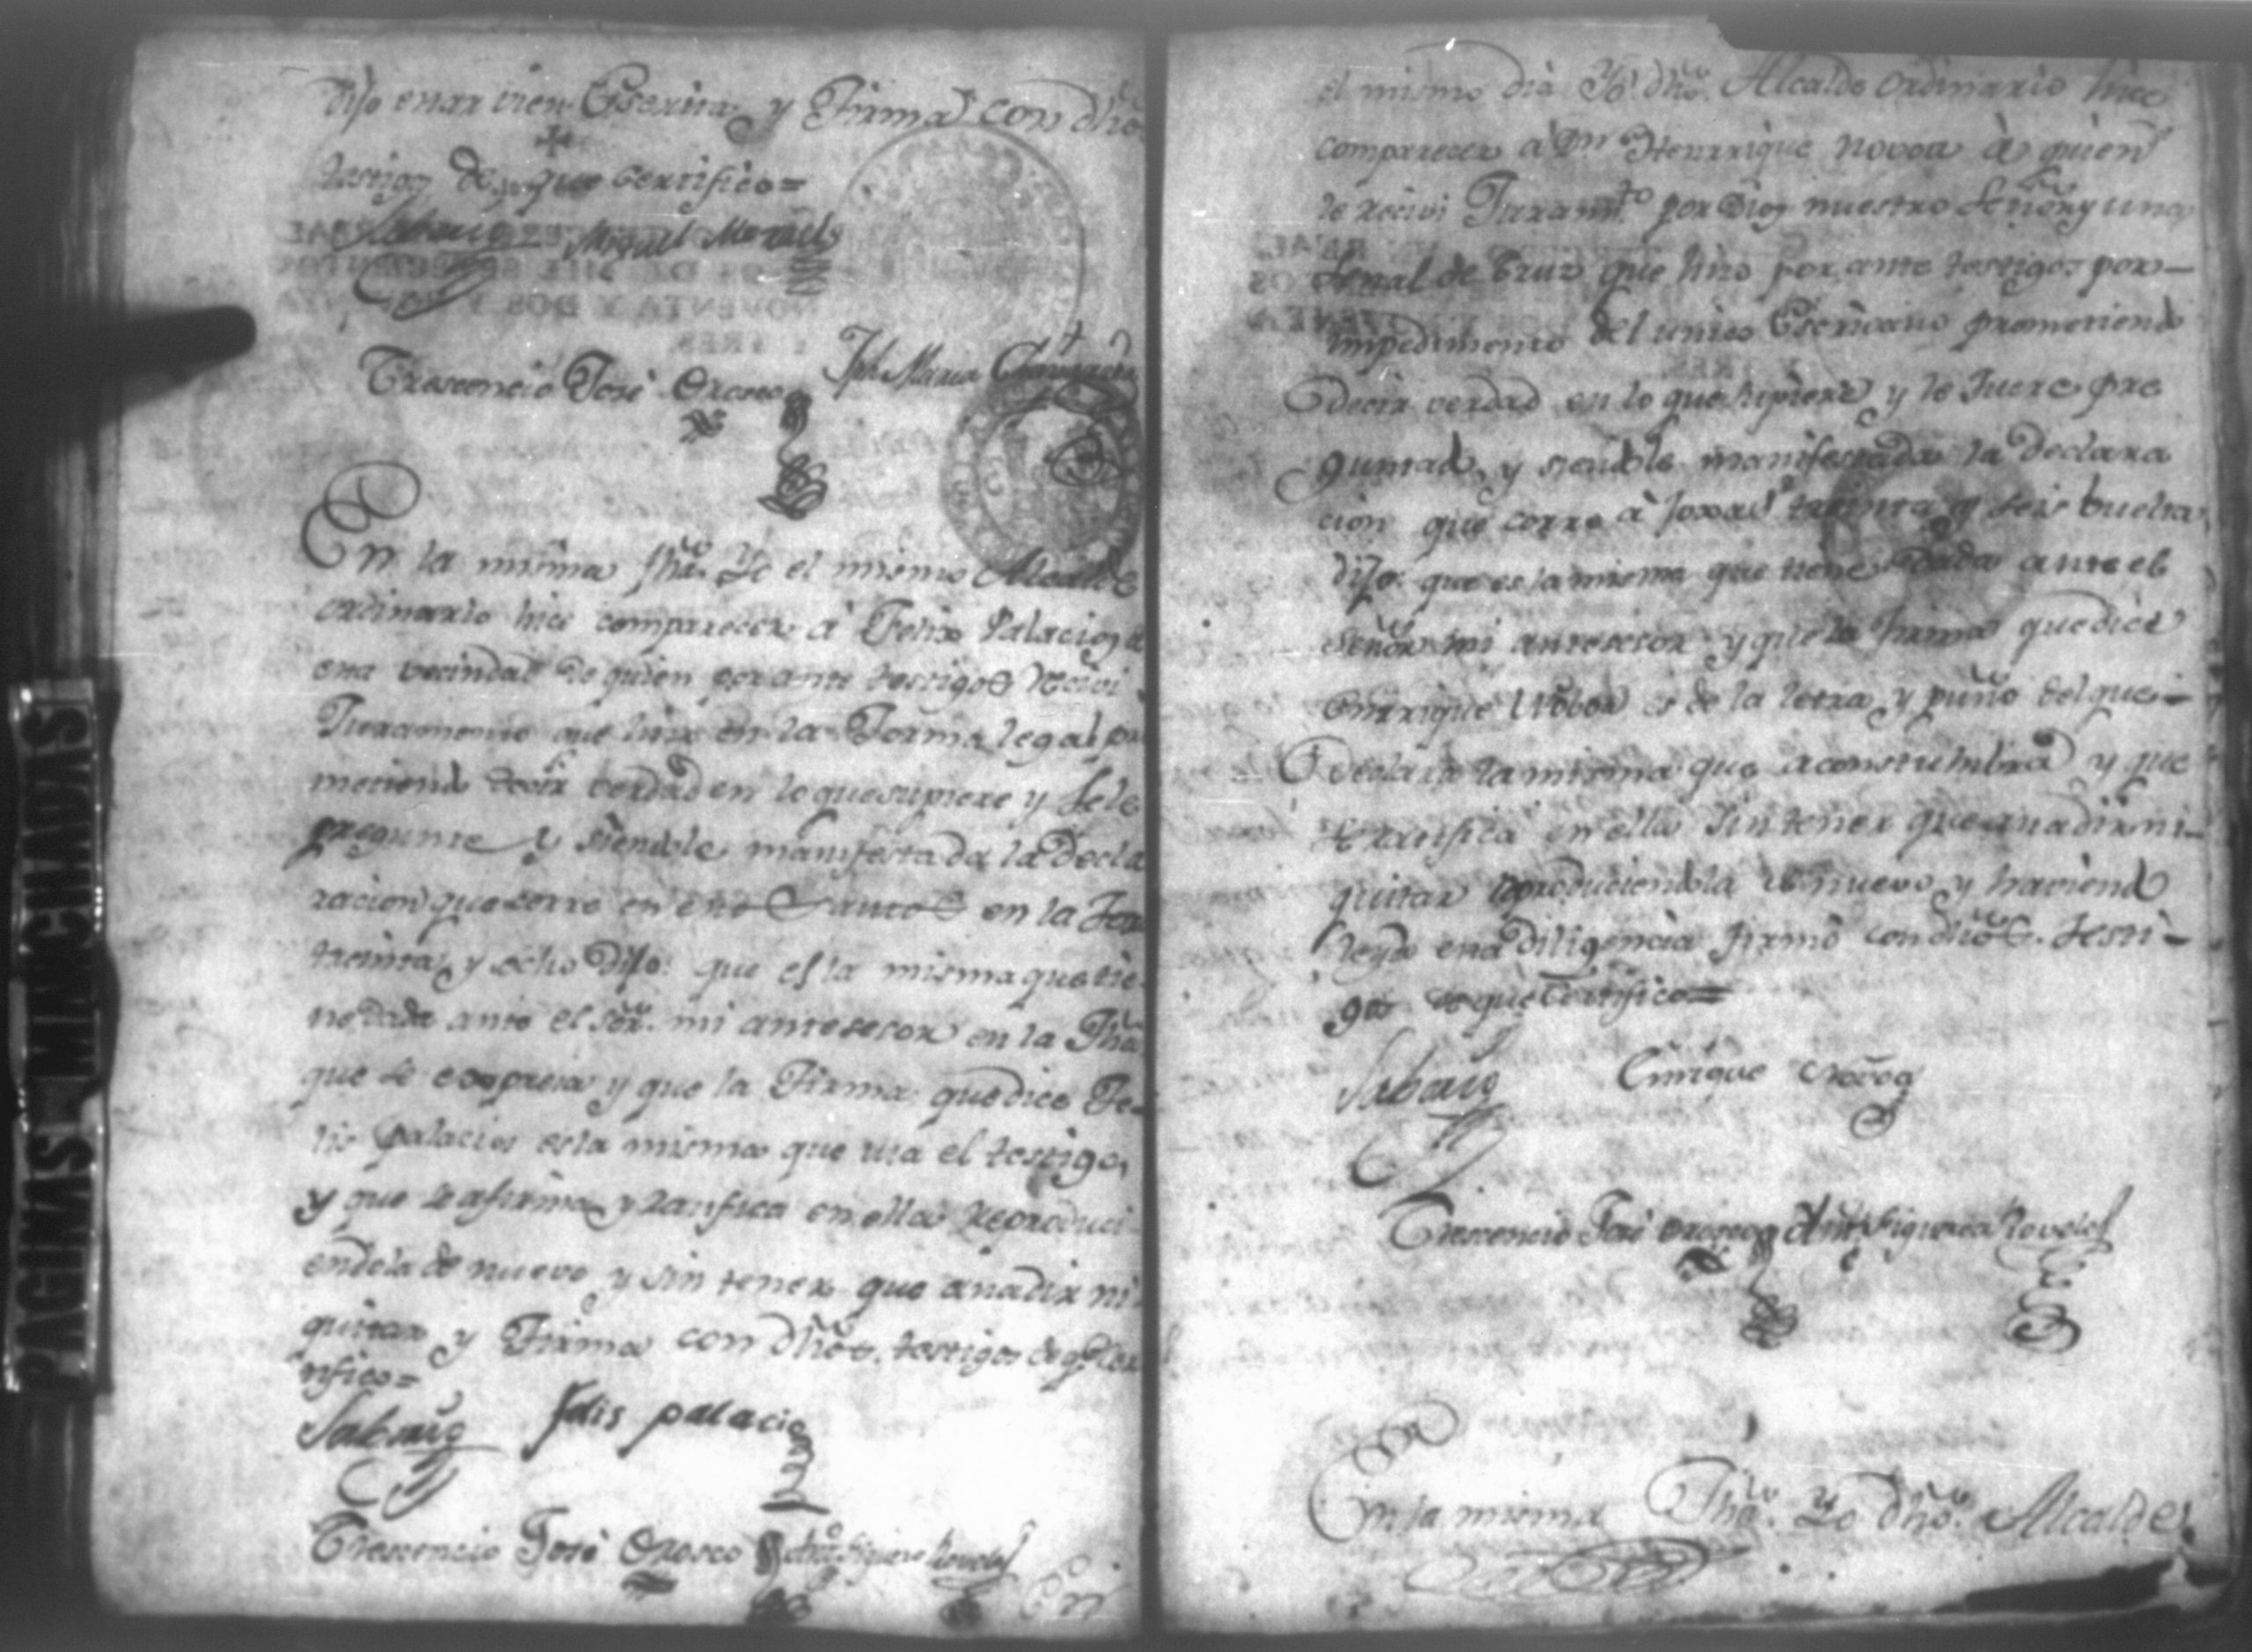 dijo estar vien Escrita, y Firma con dho
testigos de que certifico=
Sabaug Miguel Moral
Crescencio José Orosco Jph Maria
En la misma fha. Yo el mismo Alcalde
ordinario hice comparecer á Felix Palacios de
esta vecindad de quien por ante testigos Recivi
Juramento que hizo en la Forma legal pro
metiendo decir verdad en lo que supiere y se le
pregunte y siendole manifestada la Decla
racion que corre en estos autos en la Fox
treinta, y ocho Dijo: que es la misma que tie
ne dada ante el Sor. mi antesesor en la Fha
que se expresa y que la Firma que dice Fe-
lis Palacios es la misma que usa el testigo,
y que se afirma y ratifica en ella Reproduci
endola de nuevo y sin tener que anadir ni
quitar y Firma con dhos. testigos de q. Cer
tifico=
Sabaug felis palacio
Crescencio José Orosco Anto. Figueroa Rovelos
En
el mismo dia Yo dho. Alcalde ordinario hice
comparecer á Dn Henrrique Novoa á quien
le recivi Juramto por Dios nuestro Señor y una
Señal de Cruz que hizo por ante testigos por-
impedimento del unico Escrivano prometiendo
decir verdad en lo que supiere, y le Fuere pre
guntado, y siendole manifestada la Declara
cion que corre á foxas treinta, y seis buelta
dijo: que es la misma que tiene dada ante el
Señor mi antesesor y que la firma que dice
Enrrique Novoa es de la letra, y puño del que-
declara la misma que acostumbra y que
se ratifica en ella sin tener que anadir ni-
quitar reproduciendola de nuevo, y haviendo
leydo esta diligencia firmó con dhos. testi-
gos de que Certifico=
Sabaug Enrique Novoa
Crescencio José Orosco Anto. Figueroa Rovelos
En la misma Fha. Yo dho. Alcalde
PAGINAS MANCHADAS